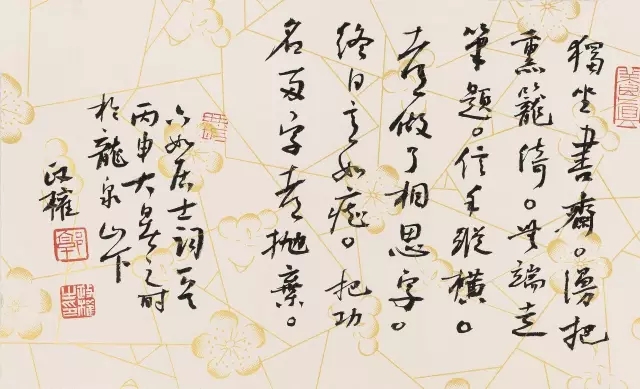 獨坐書齋。漫把
熏籠倚。無端走
筆題。信手縱橫。
都做了相思字。
終日如痴。把功
名兩字都拋棄。
六如居士詞一
丙申大暑之時
於龍泉山下
政權